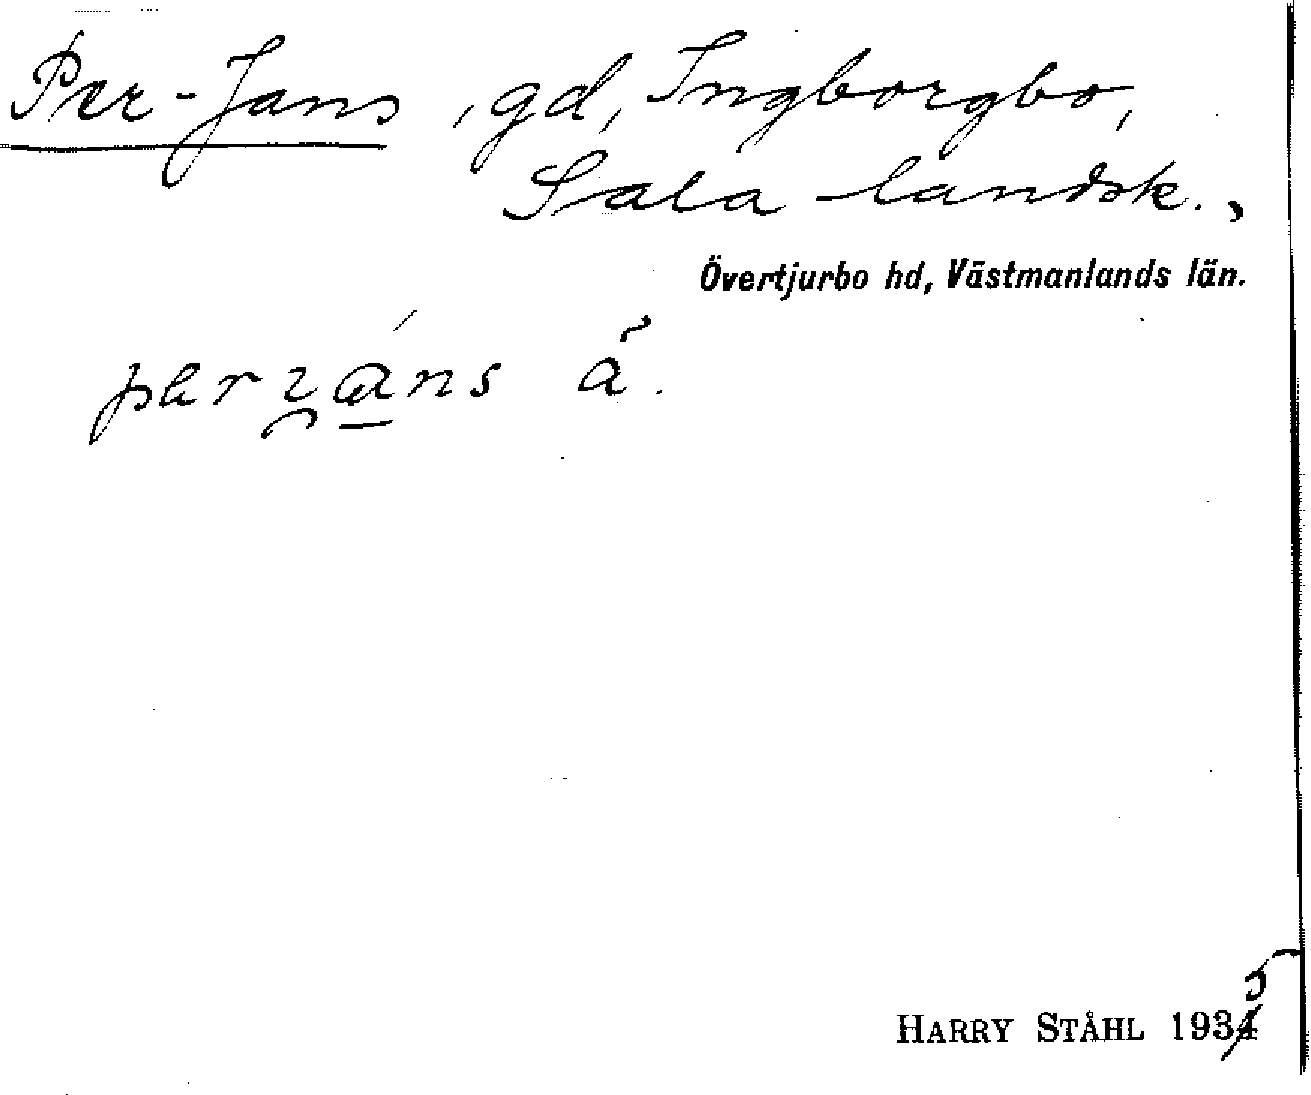 Per-Jans, gd, Ingborgbo,
Sala landsk.,
Övertjurbo hd, Västmanlands län.
HARRY STÅHL 1935